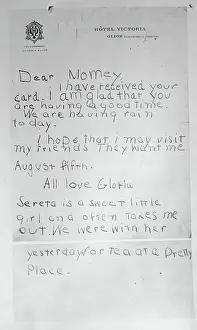 HÔTEL VICTORIA
GLION
Dear Momey,
I have received your
card. I am glad that you
are having a good time.
We are having rain
to day.
I hope that i may visit
my friends They want me
August fifth.
All love Gloria
Sereta is a sweet little
girl and often takes me
out. We were with her
yesterday for tea at a Pretty
Place.